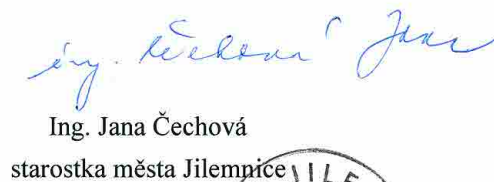 ing. Čechová Jana
Ing. Jana Čechová
starostka města Jilemnice
JILE